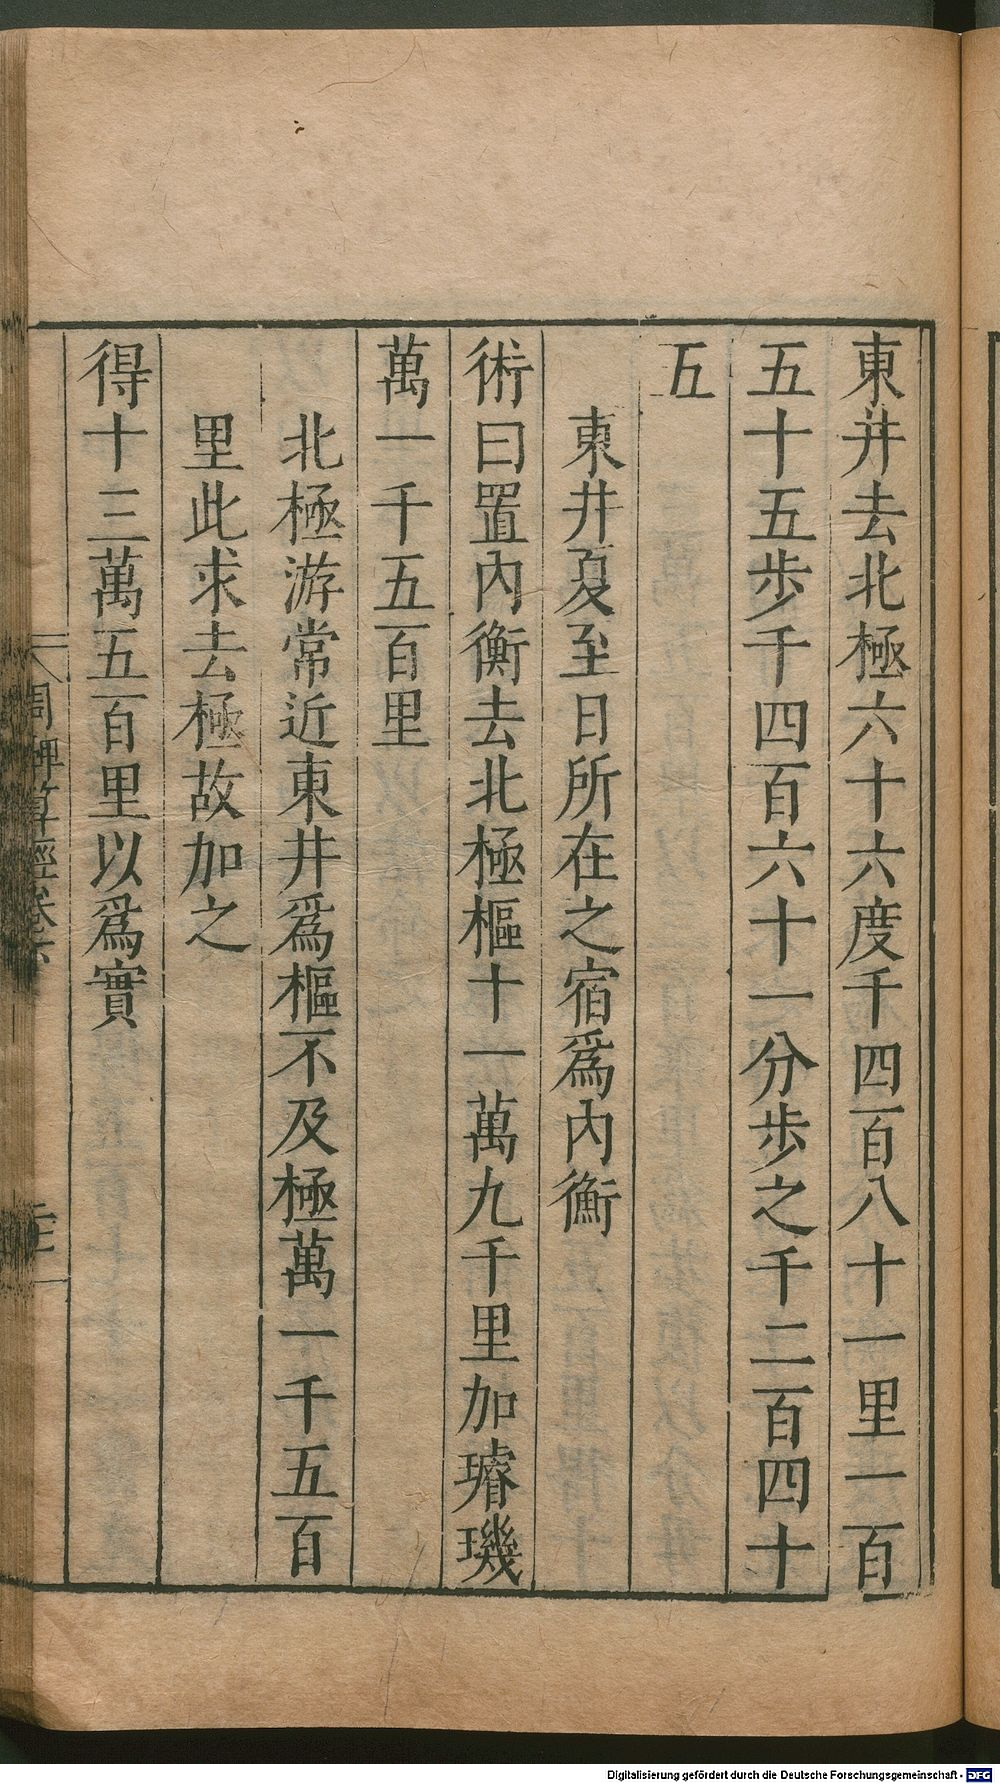 東井去北極六十六度千四百八十一里一百
五十五步千四百六十一分步之千二百四十
五
東井夏至日所在之宿爲內衡
術曰置內衡去北極樞十一萬九千里加璿璣
萬一千五百里
北極游常近東井爲樞不及極萬一千五百
里此求去極故加之
得十三萬五百里以爲實
周髀算經卷下
Digitalisierung gefördert durch die Deutsche Forschungsgemeinschaft - DFG